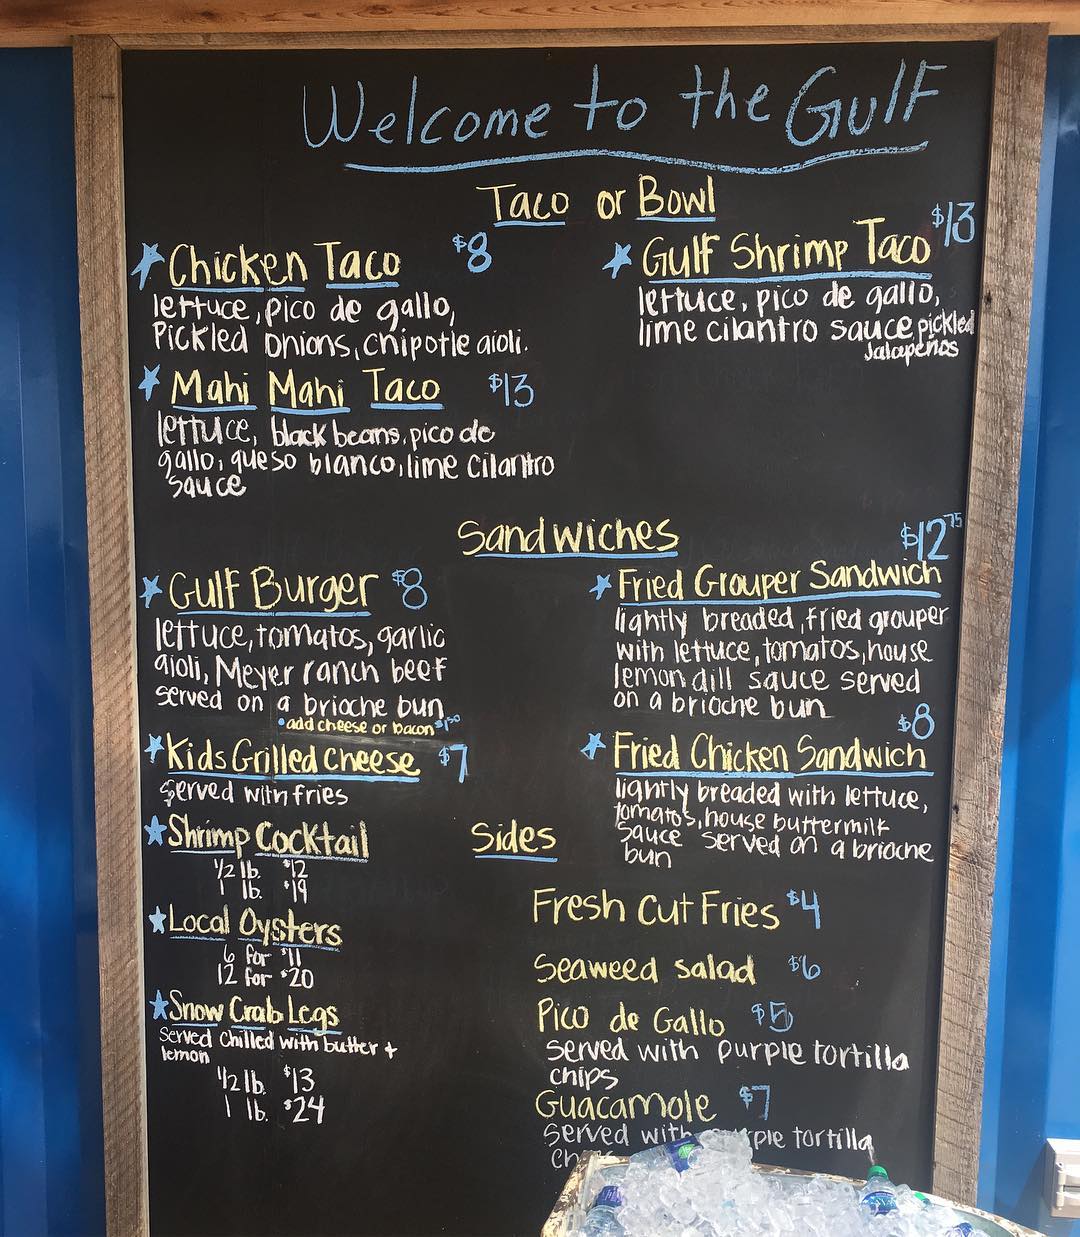 Welcome to the Gulf
Taco or Bowl
Chicken Taco $8
lettuce, pico de gallo,
Pickled onions, chipotle aioli.
Mahi Mahi Taco $13
lettuce, black beans, pico de
gallo, queso blanco, lime cilantro
sauce
Gulf Shrimp Taco $13
lettuce, pico de gallo,
lime cilantro sauce, pickled
Jalapeños
Sandwiches
Gulf Burger $8
lettuce, tomatos, garlic
aioli, Meyer ranch beef
served on a brioche bun
• add cheese or bacon $1.50
Kids Grilled Cheese $7
served with fries
Shrimp Cocktail
1/2 lb. $12
1 lb. $19
Local Oysters
6 for $11
12 for $20
Snow Crab Legs
Served Chilled with butter +
lemon
1/2 lb. $13
1 lb. $24
$12 75
Fried Grouper Sandwich
lightly breaded, fried grouper
with lettuce, tomatos, house
lemon dill sauce served
on a brioche bun
$8
Fried Chicken Sandwich
lightly breaded with lettuce,
tomatos, house buttermilk
sauce served on a brioche
bun
Sides
Fresh Cut Fries $4
Seaweed salad $6
Pico de Gallo $5
served with purple tortilla
chips
Guacamole $7
served with tortilla